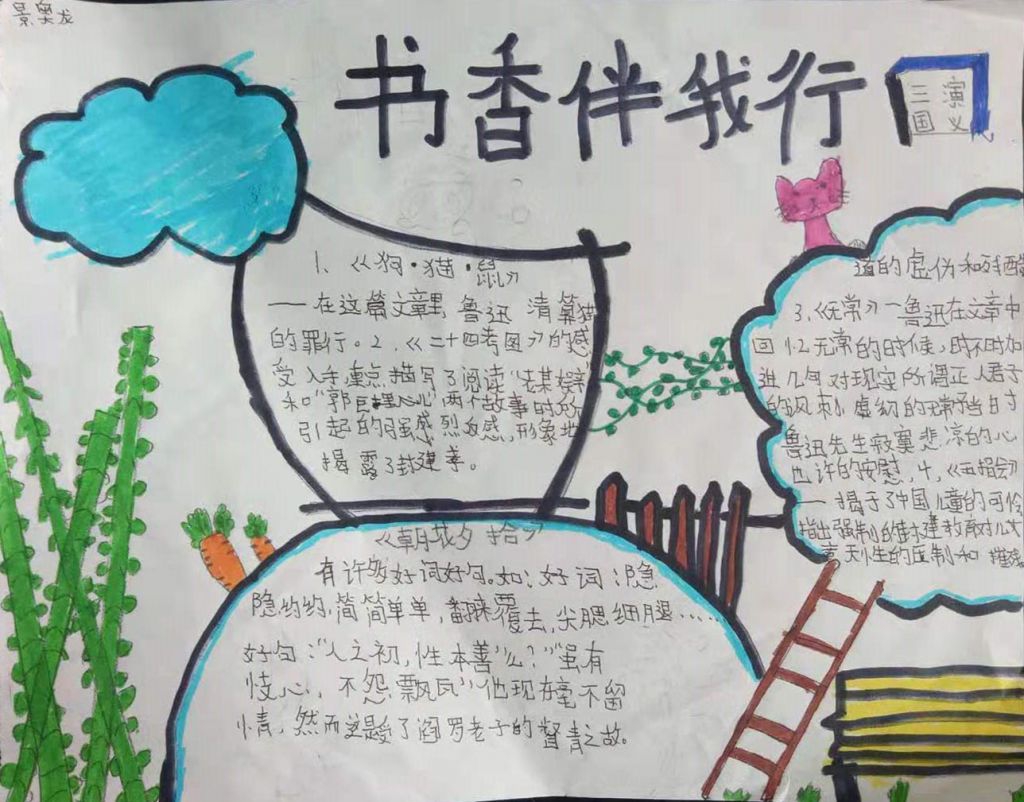 景奥龙
书香伴我行
三演
国义
1、《狗·猫·鼠》
—在这篇文章里,鲁迅 清算猫
的罪行。2、《二十四考图》的感
受入手,重点描写了阅读"老莱娱亲
和"郭巨埋儿"两个故事时所
引起的强感烈反感,形象地
揭露了封建孝。
道的虚伪和残酷
3、《无常》—鲁迅在文章中
回忆无常的时候,时不时加
进几句对现实所谓正人君子
的讽刺,虚幻的无常当时
鲁迅先生寂寞悲凉的心
也许的安慰,4、《五猖会》
—揭于了中国儿童的可怜
指出强制的封建教育对儿女
天性的压制和 摧残
《朝花夕拾》
有许够好词好句,如:好词:隐
隐约约,简简单单,翻来覆去,尖腮细腿……
好句:"人之初,性本善"么?"虽有
忮心,不怨飘瓦"他现在毫不留
情,然而这是受了阎罗老子的督责之故。